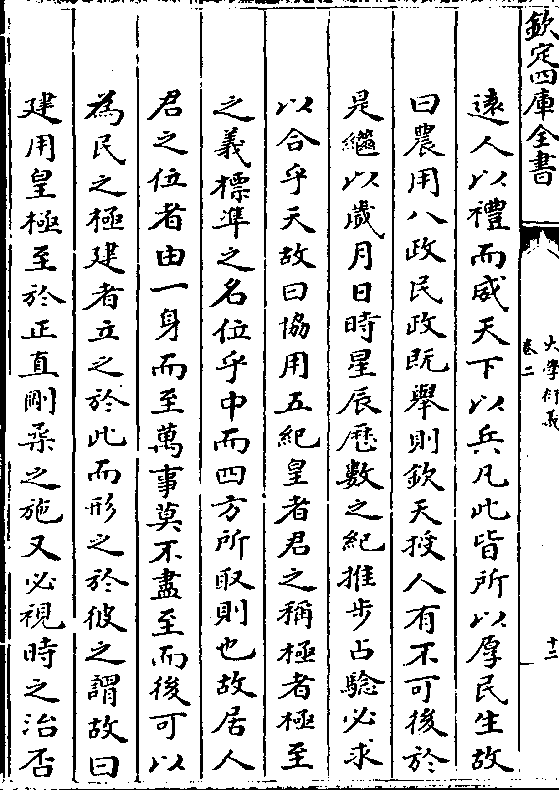 欽定四庫全書
大學衍義
卷二
十二
遠人以禮而威天下以兵凡此皆所以厚民生故
曰農用八政民政既舉則欽天授人有不可後於
是繼以歲月日時星辰厯數之紀推步占驗必求
以合乎天故曰協用五紀皇者君之稱極者極至
之義標準之名位乎中而四方所取則也故居人
君之位者由一身而至萬事莫不盡至而後可以
為民之極建者立之於此而形之於彼之謂故曰
建用皇極至於正直剛柔之施又必視時之治否